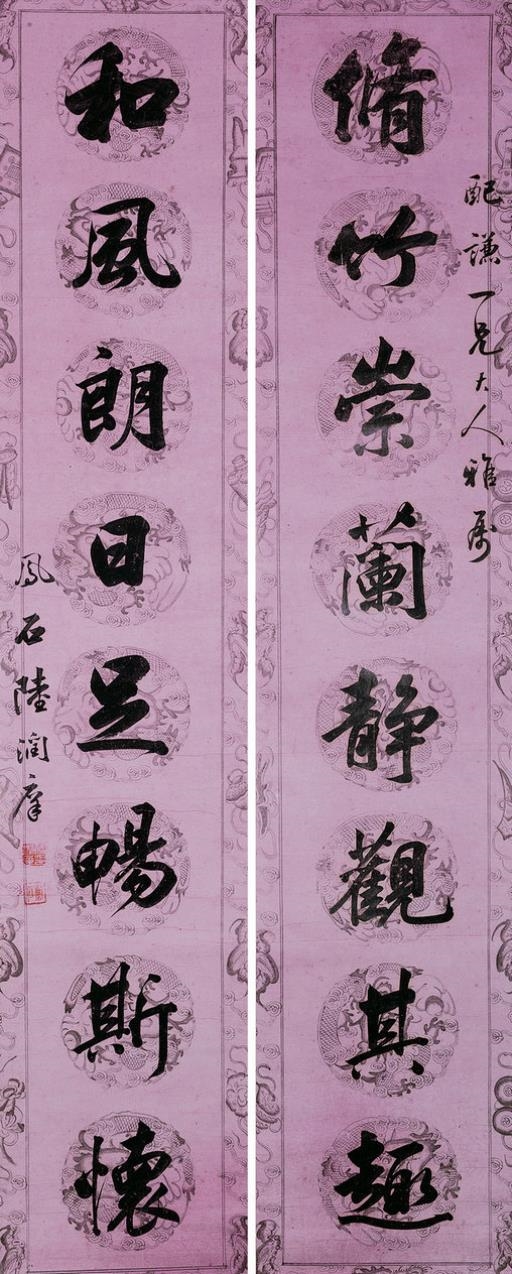 配謙一兄大人雅属
脩竹崇蘭静觀其趣
和風朗日足暢斯懷
鳳石陸潤庠